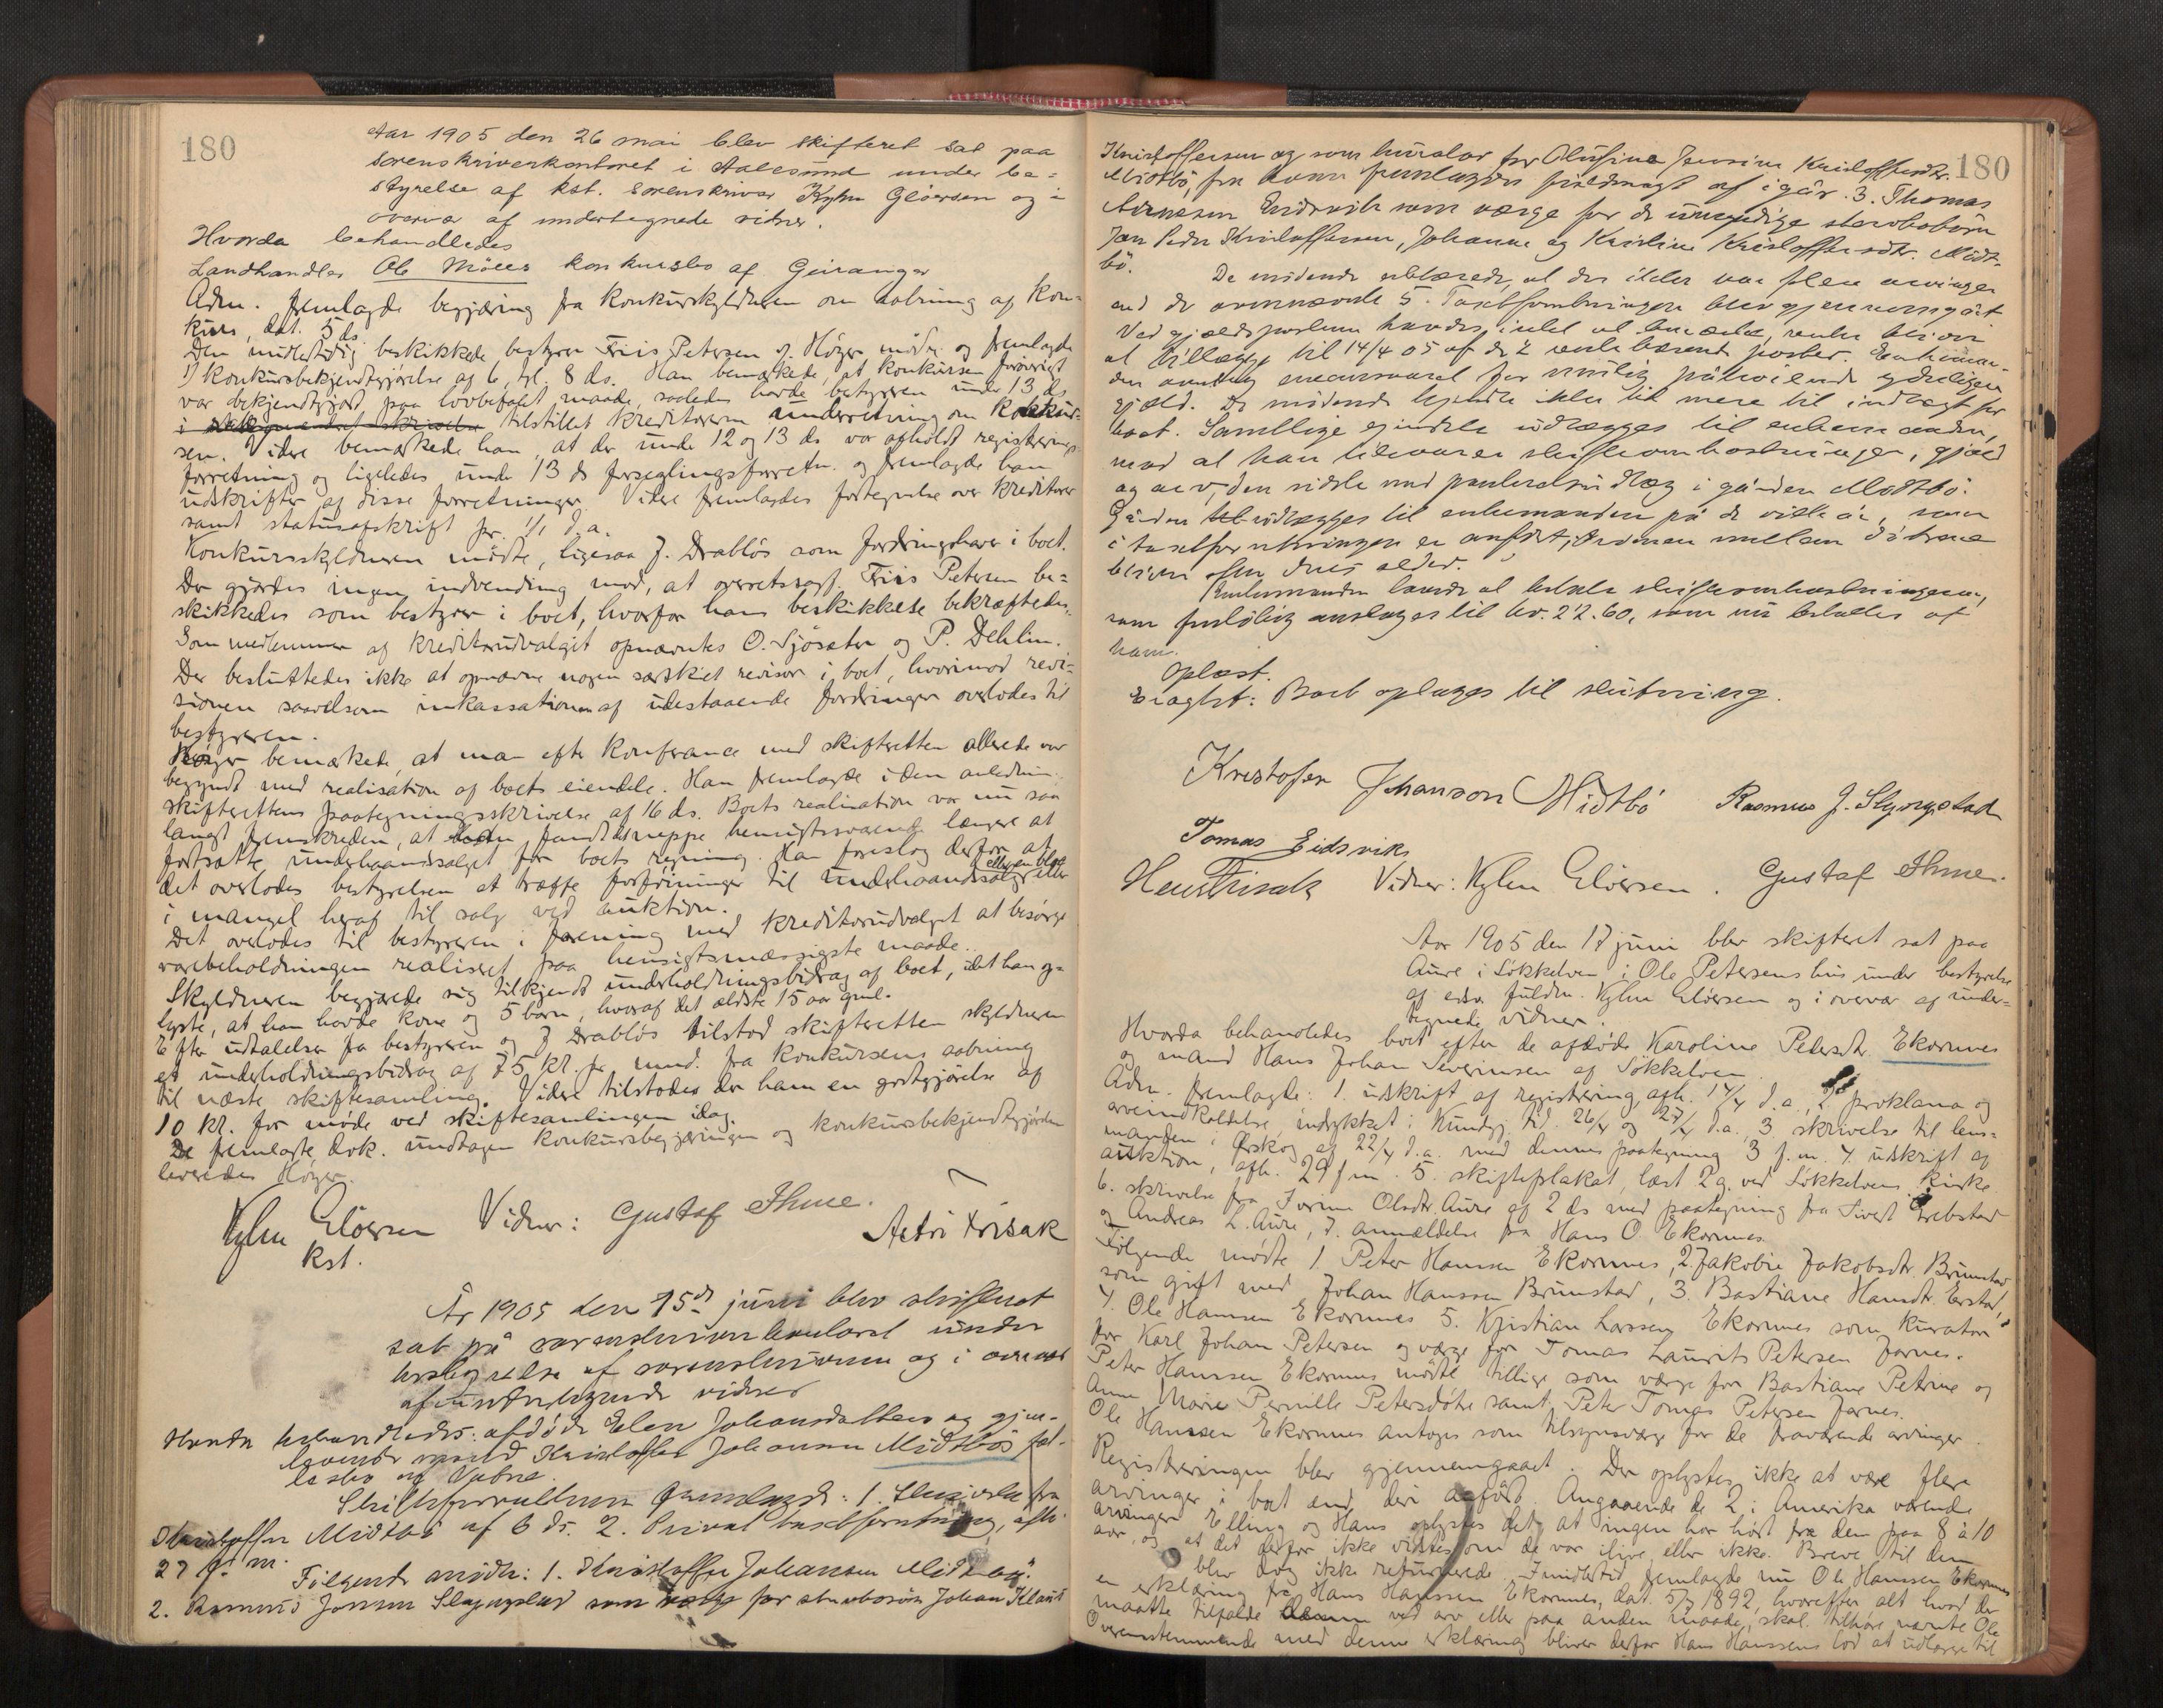 180
Aar 1905 den 26 mai blev skifteret sat paa
sorenskriverkontoret i Aalesund under be=
styrelse af kst. sorenskriver Kyhn Gløersen og i
overvær af undertegnede vidner.
Hvorda behandledes
Landhandler Ole Møllers konkursbo af Geiranger
Adm. fremlagde begjæring fra konkursskyldneren om aabning af kon=
kurs, dat. 5 ds.
Den midlertidig beskikkede bestyrer Friis Petersen v. Høyer mødte og fremlagde
1) konkursbekjendtgjørelse af 6, tgl. 8 ds. Han bemærkede, at konkursen forøvrigt
var bekjendtgjort paa lovbefalet maade, saaledes havde bestyreren under 13 ds
tilstillet kreditorerne underretning om konkur=
sen. Videre bemærkede han, at der under 12 og 13 ds var afholdt registrerings
forretning og ligeledes under 13 ds forseglingsforretn. og fremlagde han
udskrifter af disse forretninger. Videre fremlagdes fortegnelse over kreditorer
samt statusafskrift pr. 1/1 d.a.
Konkursskyldneren mødte, ligesaa J. Drabløs som fordringshaver i boet.
Der gjordes ingen indvending mod, at overretssagf. Friis Petersen be=
skikkedes som bestyrer i boet, hvorfor hans beskikkelse bekræftedes.
Som medlemmer af kreditorudvalget opnævntes O. Sjøsæter og P. Dehlin.
Der besluttedes ikke at opnævne nogen særskilt revisor i boet, hvorimod revi=
sionen saavelsom inkassationen af udestaaende fordringer overlodes til
bestyreren.
Høyer bemærkede, at man efter konferance med skifteretten allerede var
begyndt med realisation af boets eiendele. Han fremlagde i den anledning
skifterettens paategningsskrivelse af 16 ds. Boets realisation var nu saa
langt fremskreden, at fandt neppe hensigtssvarende længere at
fortsætte underhaandssalget for boets regning. Han foreslog derfor at
det overlodes bestyrelsen at træffe forføininger til underhaandssalg eller
i mangel heraf til salg ved auktion.
Det overlodes til bestyreren i forening med kreditorudvalget at besørge
varebeholdningen realiseret paa hensigtsmæssigste maade.
Skyldneren begjærede sig tilkjendt underholdningsbidrag af boet, idet han op=
lyste, at han havde kone og 5 børn, hvoraf det ældste 15 aar gml.
Efter udtalelser fra bestyreren og J Drabløs tilstod skifteretten skyldneren
et underholdningsbidrag af 75 kr. pr mnd. fra konkursens aabning
til næste skiftesamling. Videre tilstodes der ham en godtgjørelse af
10 kr. for møde ved skiftesamlingen idag.
De fremlagte dok. undtagen konkursbegjæringen og konkursbekjendtgjørelsen
leveredes Høyer.
Kyhn Gløersen Vidner: Gustaf Thue.
kst. Astri Frisak
År 1905 den 15de juni blev skifteret
sat på sorenskriverkontoret under
bestyrelse af sorenskriveren og i overvær
af undertegnede vidner
Hvorda behandledes: afdøde Elen Johansdatters og gjen-
levende mand Kristoffer Johansen Midtbøs fæl-
lesbo af
Skifteforvalteren fremlagde: 1. Skrivelse fra
Kristoffer Midtbø af 6 ds. 2. Privat taxtforretning, afh.
27 f.m.
Følgende mødte: 1. Kristoffer Johansen Midtbø.
2. Rasmus Jonsen Slyngstad som værge for sterbosøn Johan Klaus
180
Kristoffersen og som kurator for Olufine Jensine Kristoffersdtr.
Midtbø, fra hvem fremlagdes fuldmagt af igår. 3. Thomas
Eidsvik som værge for de umyndige sterbobørn
Jon Peder Kristoffersen, Johanne og Kristine Kristoffersdtr. Midt-
bø.
De mødende erklærede, at der ikke var flere arvinger
end de ovennævnte 5. Taxtforretningen blev gjennemgået
Ved gjældsposterne havdes intet at bemærke, renter bliver
at tillægge til 14/4 05 af de 2 rentebærende poster. Enkeman-
den overtog eneansvaret for mulig påhvilende yderligere
gjæld. De mødende kjendte ikke til mere til indtægt for
boet. Samtlige eiendele udlægges til enkemanden,
mod at han tilsvarer skifteomkostninger, gjæld
og arv, den sidste mod panteretsudlæg i gården Midtbø.
Gården udlægges til enkemanden på de vilkår, som
i taxtforretningen er anført,
bliver efter deres alder.
Enkemanden lovede at betale skifteomkostningerne,
som foreløbig ansloges til kr. 22.60, som nu betaltes af
ham.
Oplæst.
Eragtet: Boet optages til slutning.
Kristofer Johanson Midtbø Rasmus J. Slyngstad
Tomas Eidsvik
Frisak Vidner: Kyhn Gløersen. Gustaf Thue.
Aar 1905 den 17 juni blev skifteret sat paa
Aure i Søkkelven i Ole Petersens hus under bestyrelse
af edsv. fuldm. Kyhn Gløersen og i overvær af under=
tegnede vidner.
Hvorda behandledes boet efter de afdøde Karoline Petersdtr. Ekornnes
og mand Hans Johan Severinsen af Søkkelven.
Adm. fremlagde: 1. udskrift af registrering, afh. 14/4 d.a., 2. proklama og
arveindkaldelse, indrykket i Kundgj. tid. 26/4 og 27/4 d.a., 3. skrivelse til lens=
manden i Ørskog af 22/4 d.a. med dennes paategning 3 f.m. 4. udskrift af
auktion, afh. 29 f m. 5. skifteplakat, læst 2 g. ved Søkkelvens kirke
6. skrivelse fra Olsdtr. Aure af 2 ds med paategning fra Sivert Grebstad
og Andreas L. Aure, 7. anmeldelse fra Hans O. Ekornnes.
Følgende mødte 1. Peter Hanssen Ekornnes, 2. Jakobie Jakobsdtr. Brunstad
som gift med Johan Hanssen Brunstad, 3. Bastiane Hansdtr. Erstad,
4. Ole Hanssen Ekornnes 5. Kristian Larssen Ekornnes som kurator
for Karl Johan Petersen og værge for Tomas Laurits Petersen Jarnes.
Peter Hanssen Ekornnes mødte tillige som værge for Bastiane Petrine og
Anne Marie Pernille Petersdøtre samt Peter Tomas Petersen Jarnes.
Ole Hanssen Ekornnes antoges som tilsynsværge for de fraværende arvinger.
Registreringen blev gjennemgaaet. Der oplystes ikke at være flere
arvinger i boet end deri anført. Angaaende de 2 i Amerika værende
arvinger Elling og Hans oplystes det, at ingen har hørt fra dem paa 8 à 10
aar, og at det derfor ikke vidstes om de var ilive eller ikke. Breve til dem
blev dog ikke returnerede. Imidlertid fremlagde nu Ole Hanssen Ekornnes
en erklæring fra Hans Hanssen Ekornnes, dat. 5/7 1892, hvorefter alt hvad der
maatte tilfalde ved arv eller paa anden maade, skal tilhøre nævnte Ole
Overensstemmende med denne erklæring bliver derfor Hans Hanssens lod at udlægge til